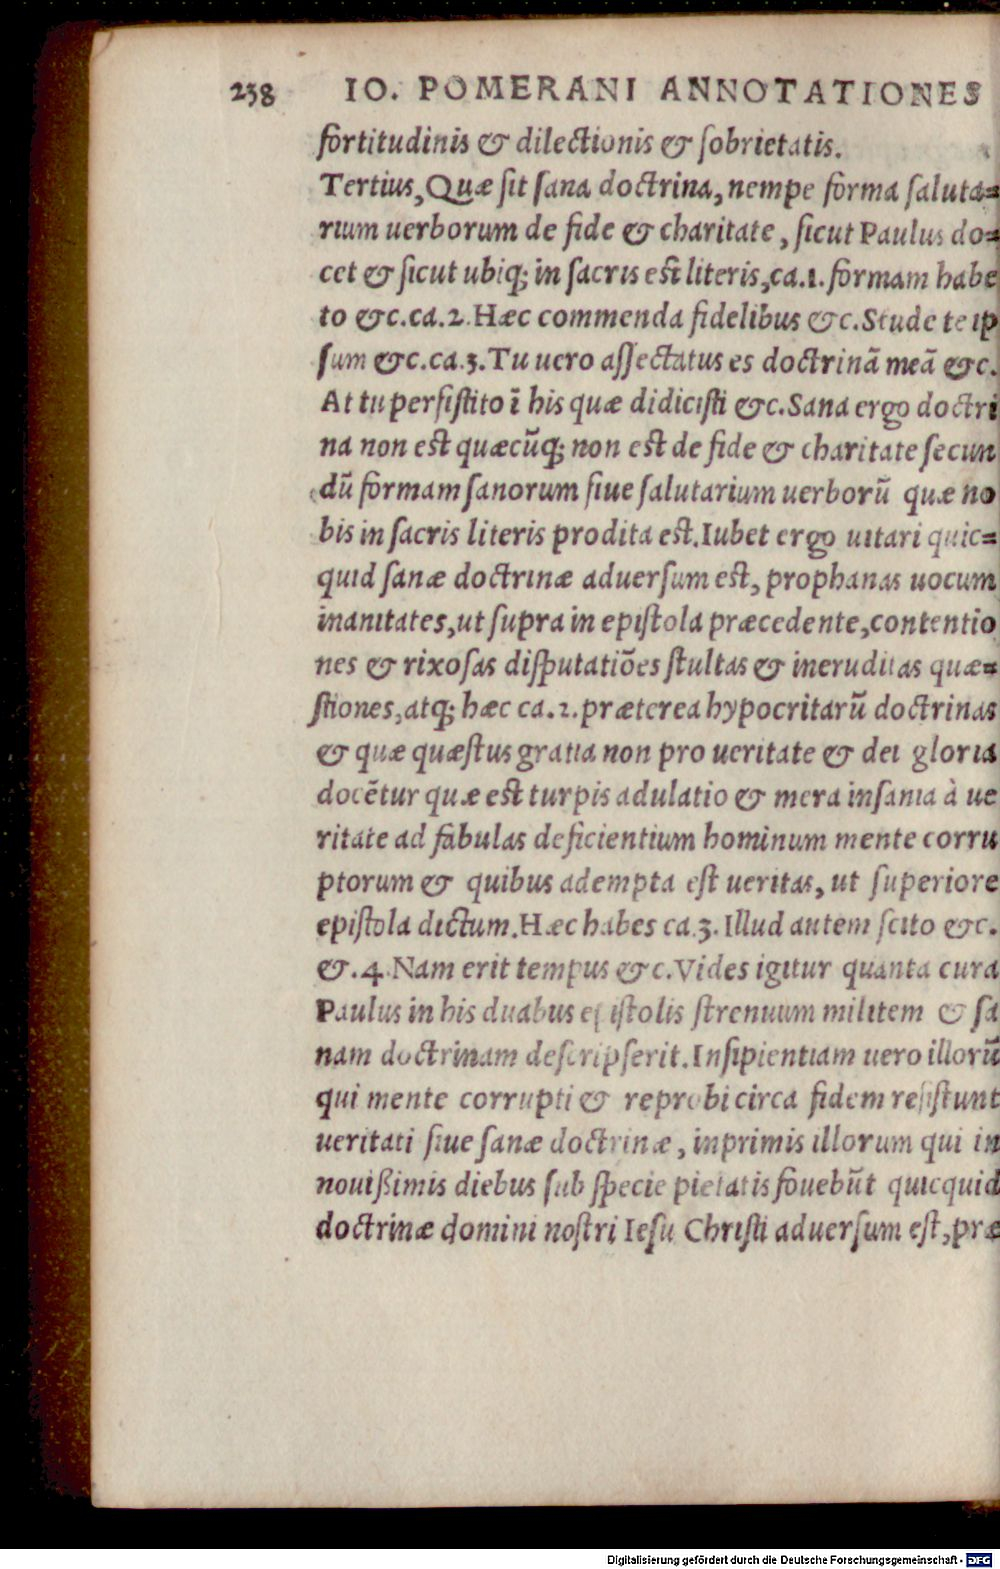 238 IO. POMERANI ANNOTATIONES
fortitudinis & dilectionis & ſobrietatis.
Tertius, Quæ ſit ſana doctrina, nempe forma ſaluta=
rium uerborum de fide & charitate, ſicut Paulus do=
cet & ſicut ubiq; in ſacris eſt literis, ca.1. formam habe
to &c. ca.2. Hæc commenda fidelibus &c. Stude te ip
ſum &c. ca.3. Tu uero aſſectatus es doctrinā meā &c.
At tu perſiſtito ī his quæ didiciſti &c. Sana ergo doctri
na non eſt quæcūq; non eſt de fide & charitate ſecun
dū formam ſanorum ſiue ſalutarium uerborū quæ no
bis in ſacris literis prodita eſt. Iubet ergo uitari quic=
quid ſanæ doctrinæ aduerſum eſt, prophanas uocum
inanitates, ut ſupra in epiſtola præcedente, contentio
nes & rixoſas diſputatiōes ſtultas & ineruditas quæ=
ſtiones, atq; hæc ca.2. præterea hypocritarū doctrinas
& quæ quæſtus gratia non pro ueritate & dei gloria
docētur quæ eſt turpis adulatio & mera inſania à ue
ritate ad fabulas deficientium hominum mente corru
ptorum & quibus adempta eſt ueritas, ut ſuperiore
epiſtola dictum. Hæc habes ca.3. Illud autem ſcito &c.
&. 4. Nam erit tempus &c. Vides igitur quanta cura
Paulus in his duabus epiſtolis ſtrenuum militem & ſa
nam doctrinam deſcripſerit. Inſipientiam uero illorū
qui mente corrupti & reprobi circa fidem reſiſtunt
ueritati ſiue ſanæ doctrinæ, inprimis illorum qui in
nouißimis diebus ſub ſpecie pietatis fouebūt quicquid
doctrinæ domini noſtri Ieſu Chriſti aduerſum eſt, præ
Digitalisierung gefördert durch die Deutsche Forschungsgemeinschaft - DFG